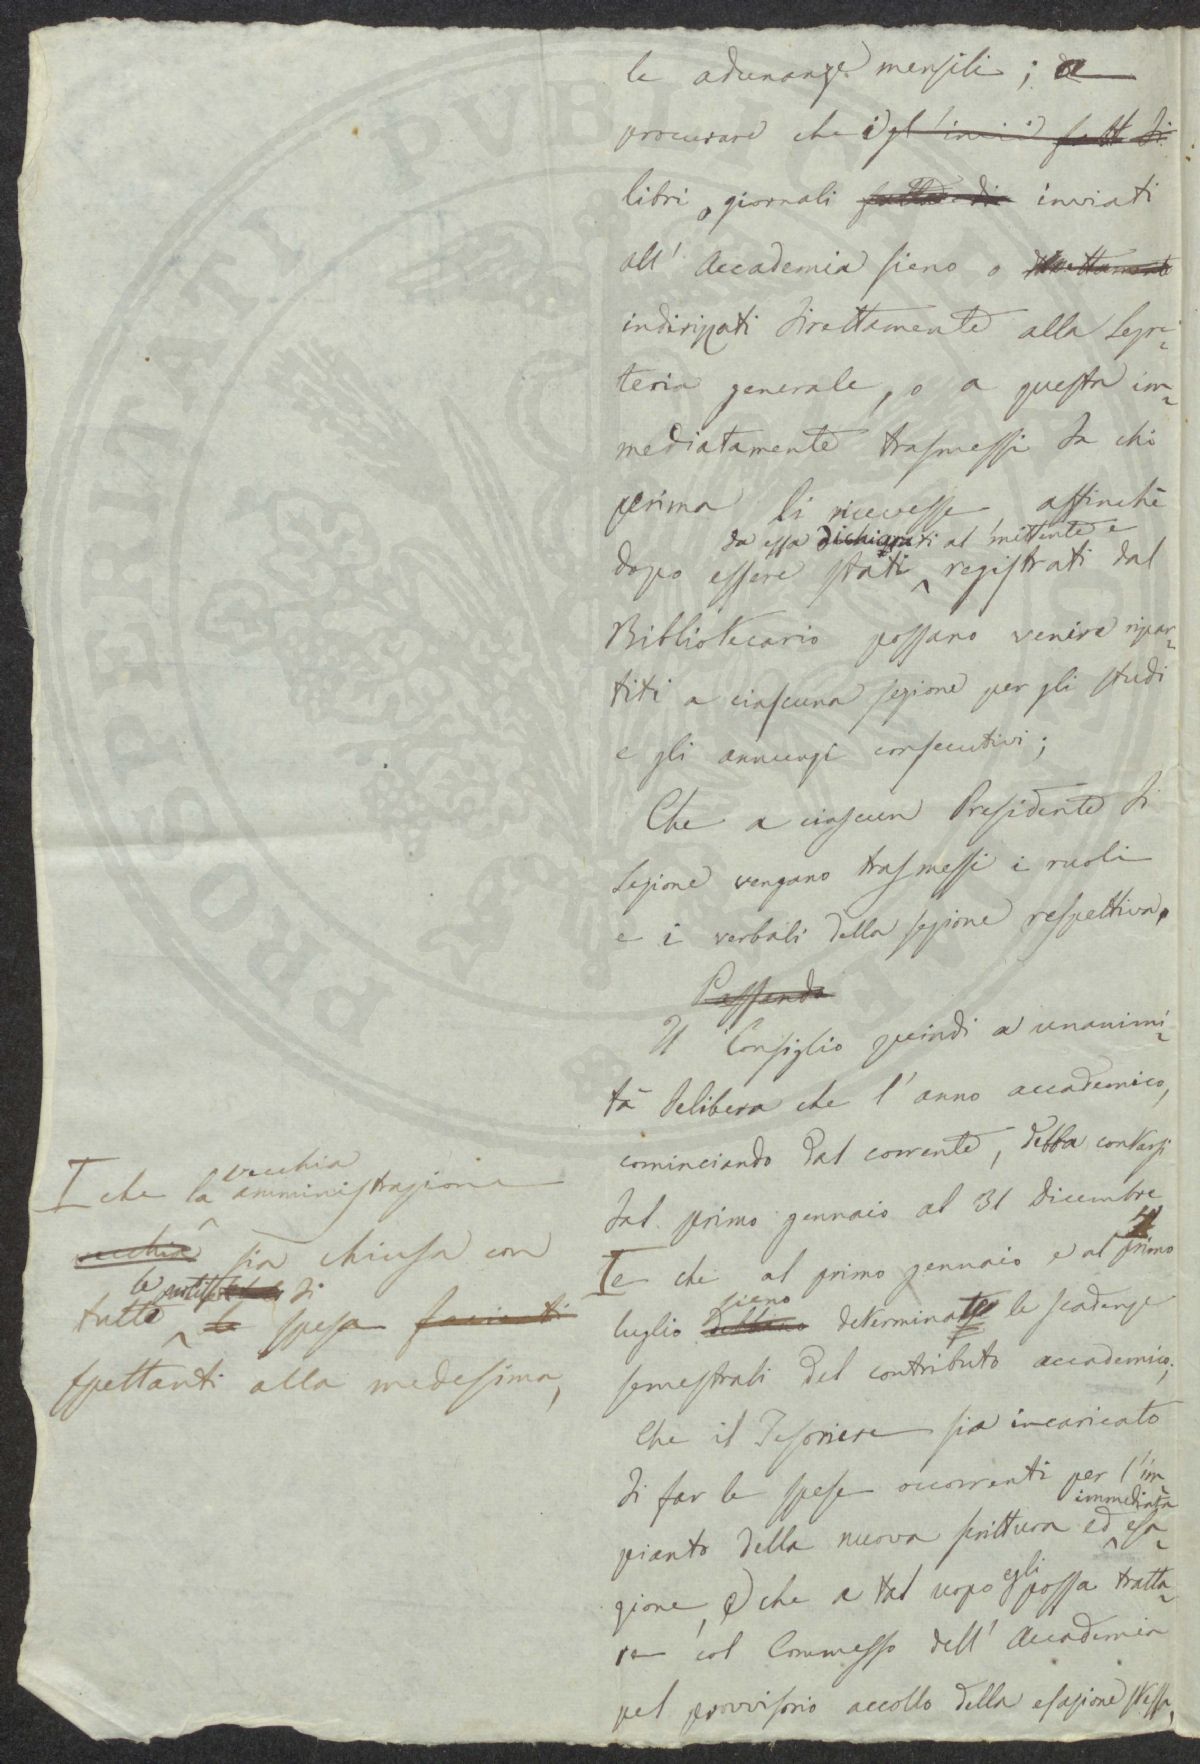 le adunanze mensili; a
procurare che i gl'invii fatti di
libri, giornali fatti di inviati
all'Accademia sieno o direttamente
indirizzati direttamente alla Segre-
teria generale, o a questa im-
mediatamente trasmessi da chi
prima li ricevesse, affinchè
da essa dichiarati al mittente e
dopo essere stati registrati dal
Bibliotecario possano venire ripar-
titi a ciascuna sezione per gli studi
e gli annunzi consecutivi;
Che a ciascun Presidente di
Sezione vengano trasmessi i ruoli
e i verbali della sezione respettiva.
Passando
Il Consiglio quindi a unanimi-
tà delibera che l'anno accademico,
cominciando dal corrente, debba contarsi
dal primo gennaio al 31 Dicembre
e che al primo gennaio e al primo
sieno
luglio debbano determinate le scadenze
semestrali del contributo accademico;
Che il Tesoriere sia incaricato
di far le spese occorrenti per l'im-
pianto della nuova scrittura ed immediata esa-
zione, e che a tal uopo egli possa tratta-
re col Commesso dell'Accademia
pel provvisorio accollo della esazione stessa,
che la vecchia amministrazione
vecchia sia chiusa con
tutte le partite di
le spesa
spettanti alla medesima,
PROSPERITATI PVBLICAE